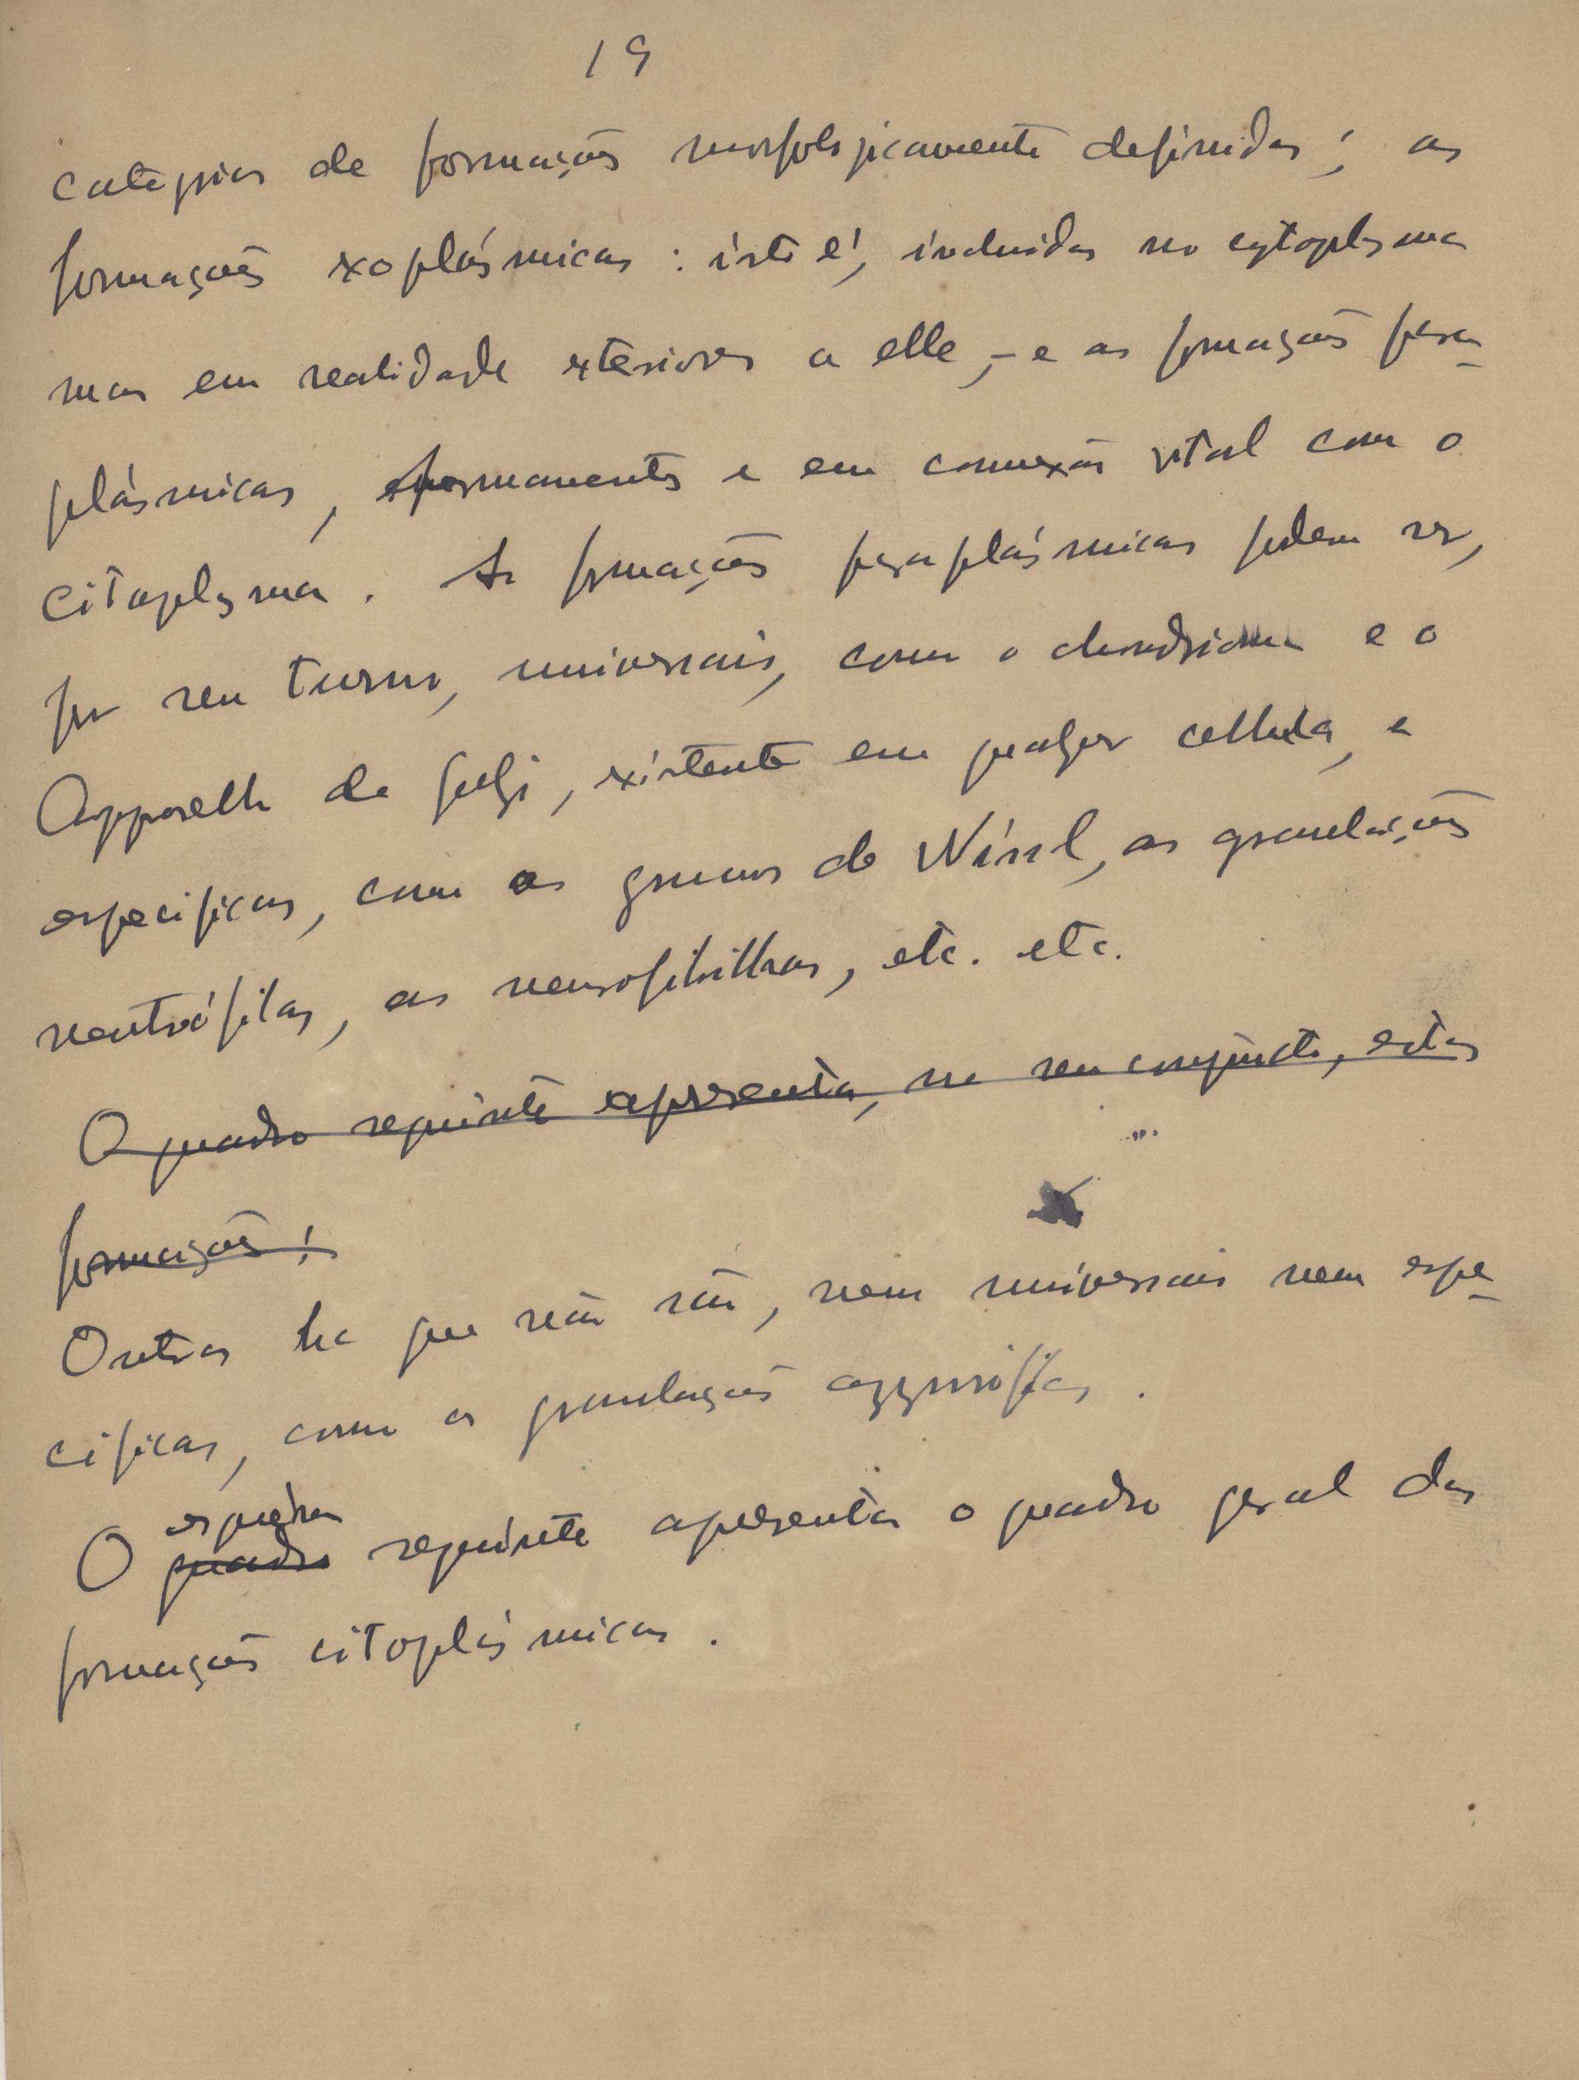 19
categorias de formações morfologicamente definidas; as
formações exoplásmicas: isto é, incluidas no cytoplasma
mas em realidade exteriores a elle, – e as formações para-
plásmicas, permanentes e em connexão vital com o
citoplasma. As formações paraplásmicas podem ser,
por seu turno, universais, como o chondrioma e o
Apparelho de Golgi, existente em qualquer cellula, e
especificas, como os grumos de Nissl, as granulações
neutrófilas, as neurofibrillas, etc. etc.
O quadro seguinte apresenta, no seu conjuncto, estas
formações:
Outras ha que não são, nem universais nem espe-
cificas, como as granulações azurofilas.
esquema
O quadro seguinte apresenta o quadro geral das
formações citoplásmicas.